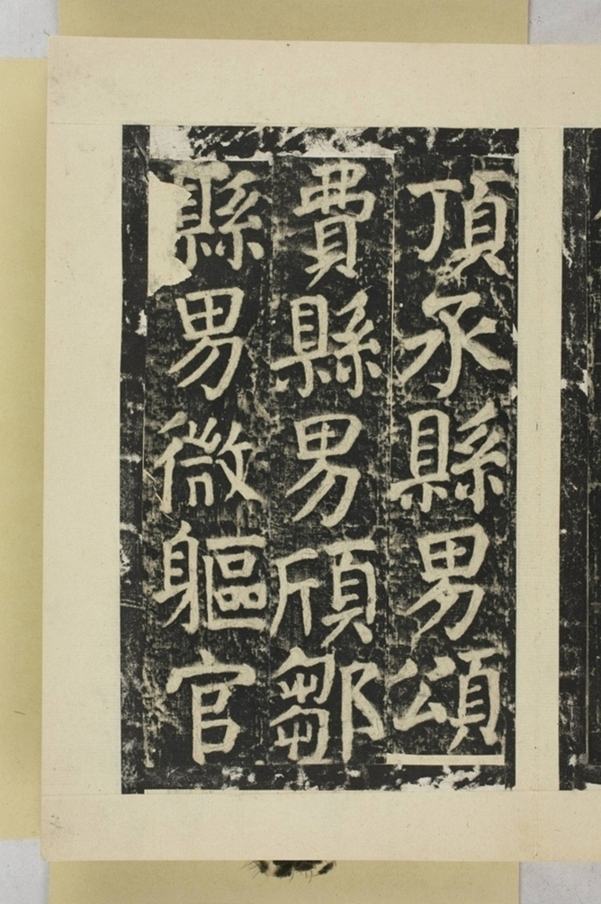 頂氶縣男頌
費縣男頎鄒
縣男微軀官